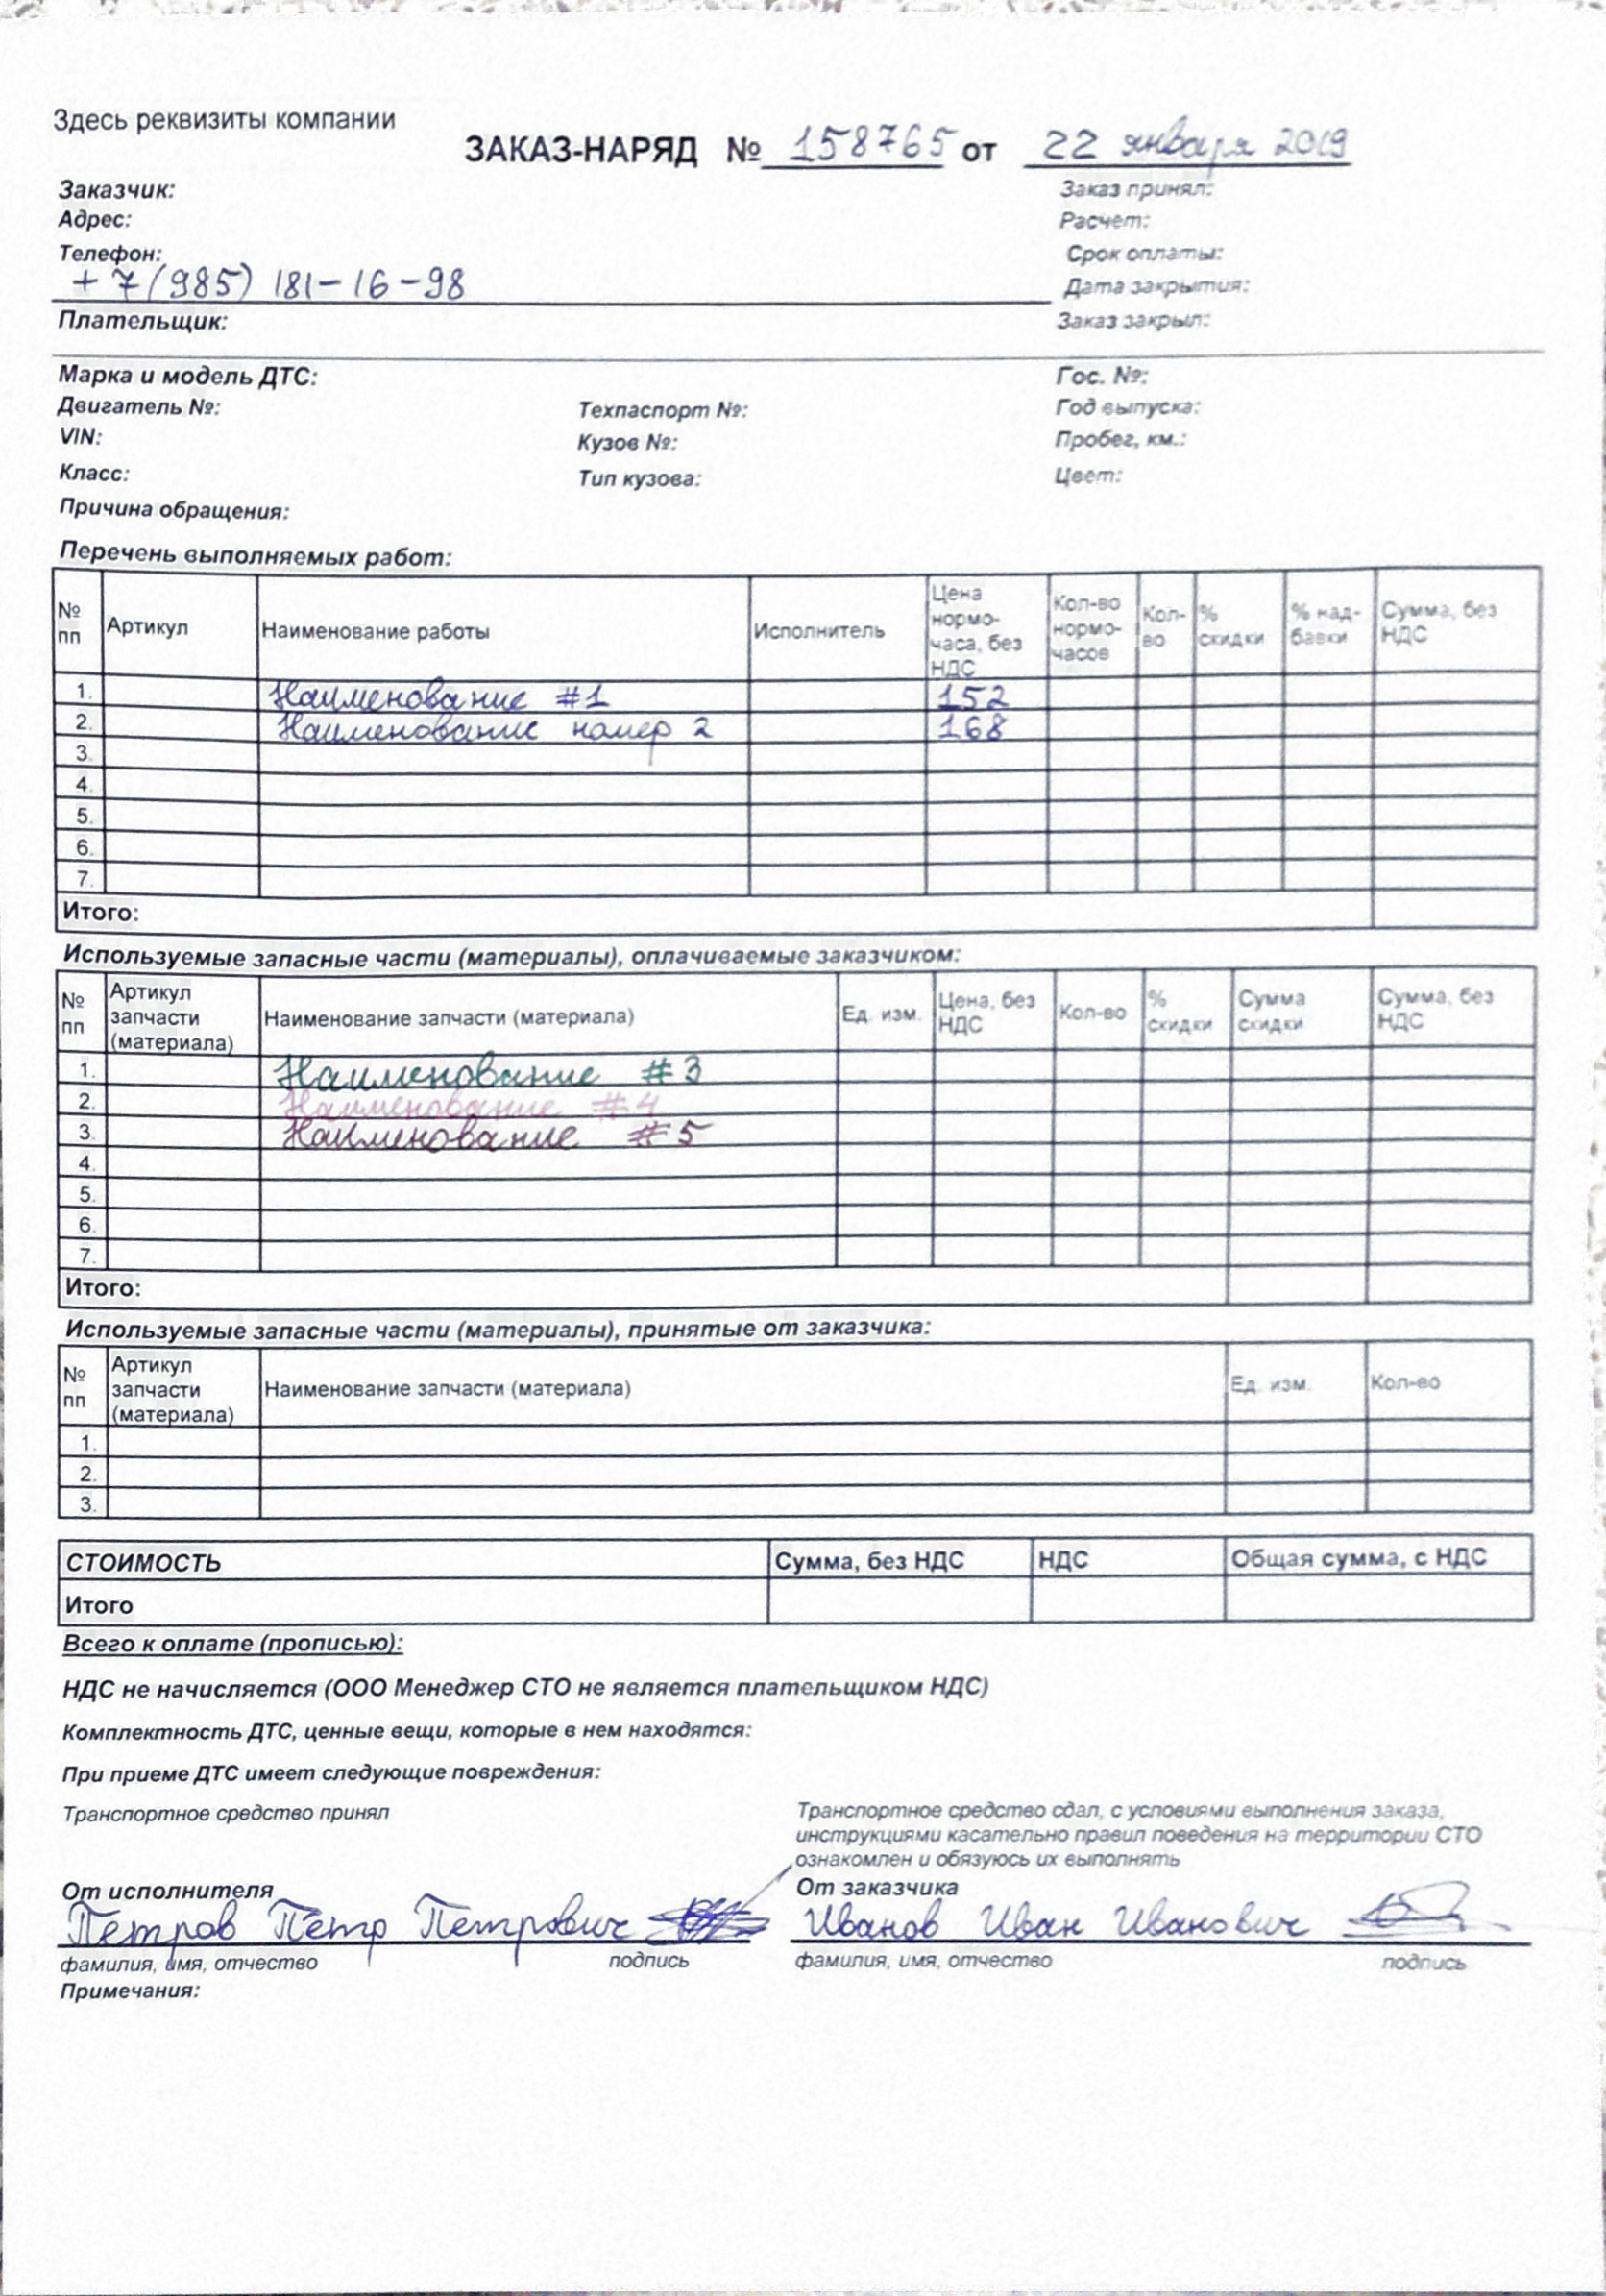 Здесь реквизиты компании
ЗАКАЗ-НАРЯД № 158765 от 22 января 2019
Заказчик: Заказ принял:
Адрес: Расчет:
Телефон: Срок оплаты:
+7(985) 181-16-98 Дата закрытия:
Плательщик: Заказ закрыл:
Марка и модель ДТС: Гос. №:
Двигатель №: Техпаспорт №: Год выпуска:
VIN: Кузов №: Пробег, км.:
Класс: Тип кузова: Цвет:
Причина обращения:
Перечень выполняемых работ:
№ пп Артикул Наименование работы Исполнитель Цена нормо-часа, без НДС Кол-во нормо-часов Кол-во % скидки % над-бавки Сумма, без НДС
1. Наименование #1 152
2. Наименование номер 2 168
3.
4.
5.
6.
7.
Итого:
Используемые запасные части (материалы), оплачиваемые заказчиком:
№ пп Артикул запчасти (материала) Наименование запчасти (материала) Ед. изм. Цена, без НДС Кол-во % скидки Сумма скидки Сумма, без НДС
1. Наименование #3
2. Наименование #4
3. Наименование #5
4.
5.
6.
7.
Итого:
Используемые запасные части (материалы), принятые от заказчика:
№ пп Артикул запчасти (материала) Наименование запчасти (материала) Ед. изм. Кол-во
1.
2.
3.
СТОИМОСТЬ Сумма, без НДС НДС Общая сумма, с НДС
Итого
Всего к оплате (прописью):
НДС не начисляется (ООО Менеджер СТО не является плательщиком НДС)
Комплектность ДТС, ценные вещи, которые в нем находятся:
При приеме ДТС имеет следующие повреждения:
Транспортное средство принял
Транспортное средство сдал, с условиями выполнения заказа,
инструкциями касательно правил поведения на территории СТО
ознакомлен и обязуюсь их выполнять
От исполнителя От заказчика
Петров Пётр Петрович Иванов Иван Иванович
фамилия, имя, отчество подпись фамилия, имя, отчество подпись
Примечания: